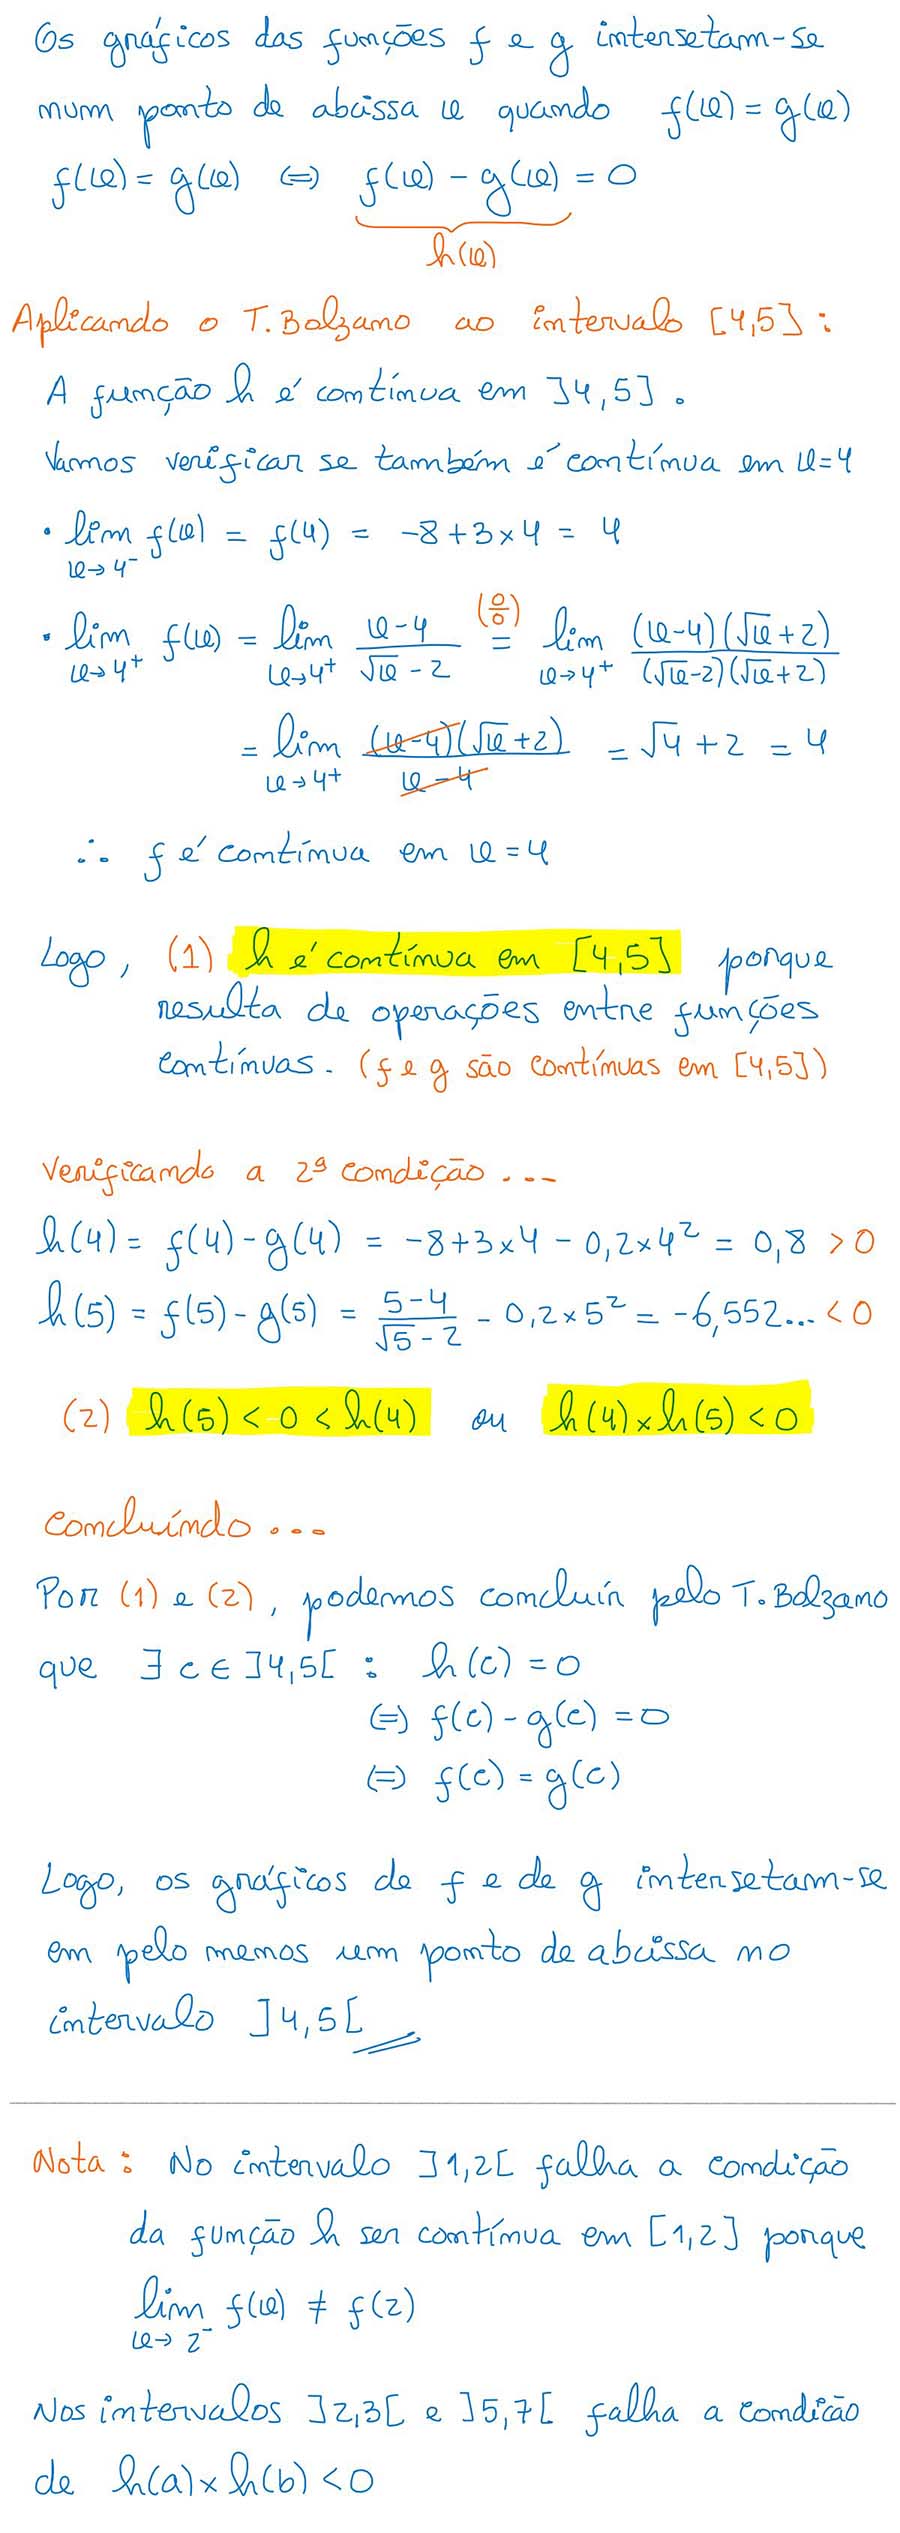 Os gráficos das funções f e g intersetam-se
num ponto de abcissa x quando f(x) = g(x)
f(x) = g(x) ⇔ f(x) - g(x) = 0
h(x)
Aplicando o T. Bolzano ao intervalo [4,5] :
A função h é contínua em ]4,5] .
Vamos verificar se também é contínua em x=4
• lim x→4⁻ f(x) = f(4) = -8+3×4 = 4
• lim x→4⁺ f(x) = lim x→4⁺ (x-4)/(√x-2) =(0/0) lim x→4⁺ ((x-4)(√x+2))/((√x-2)(√x+2))
= lim x→4⁺ ((x-4)(√x+2))/(x-4) = √4+2 = 4
∴ f é contínua em x=4
Logo, (1) h é contínua em [4,5] porque
resulta de operações entre funções
contínuas. (f e g são contínuas em [4,5])
Verificando a 2ª condição ...
h(4) = f(4)-g(4) = -8+3×4 - 0,2×4² = 0,8 > 0
h(5) = f(5)-g(5) = (5-4)/(√5-2) - 0,2×5² = -6,552... < 0
(2) h(5) < 0 < h(4) ou h(4)×h(5) < 0
Concluíndo ...
Por (1) e (2), podemos concluír pelo T. Bolzano
que ∃ c ∈ ]4,5[ : h(c) = 0
⇔ f(c) - g(c) = 0
⇔ f(c) = g(c)
Logo, os gráficos de f e de g intersetam-se
em pelo menos um ponto de abcissa no
intervalo ]4,5[
Nota : No intervalo ]1,2[ falha a condição
da função h ser contínua em [1,2] porque
lim x→2⁻ f(x) ≠ f(2)
Nos intervalos ]2,3[ e ]5,7[ falha a condição
de h(a)×h(b) < 0